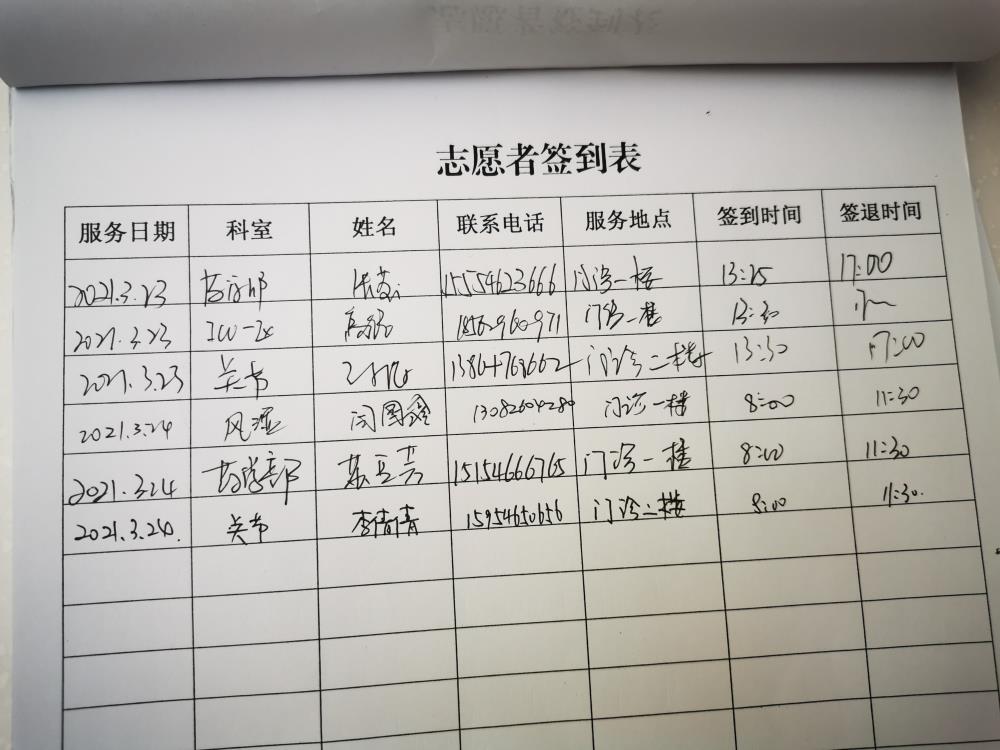 志愿者签到表
服务日期 科室 姓名 联系电话 服务地点 签到时间 签退时间
2021.3.23 药学部 15554623666 门诊一楼 13:25 17:00
2021.3.23 门诊一楼 13:30
2021.3.23 关节 门诊二楼 13:30 17:00
2021.3.24 风湿 闫国鑫 13082604280 门诊一楼 8:00 11:30
2021.3.24 药学部 15154666765 门诊一楼 8:00 11:30
2021.3.24. 关节 李倩倩 15954650656 门诊二楼 8:00 11:30.